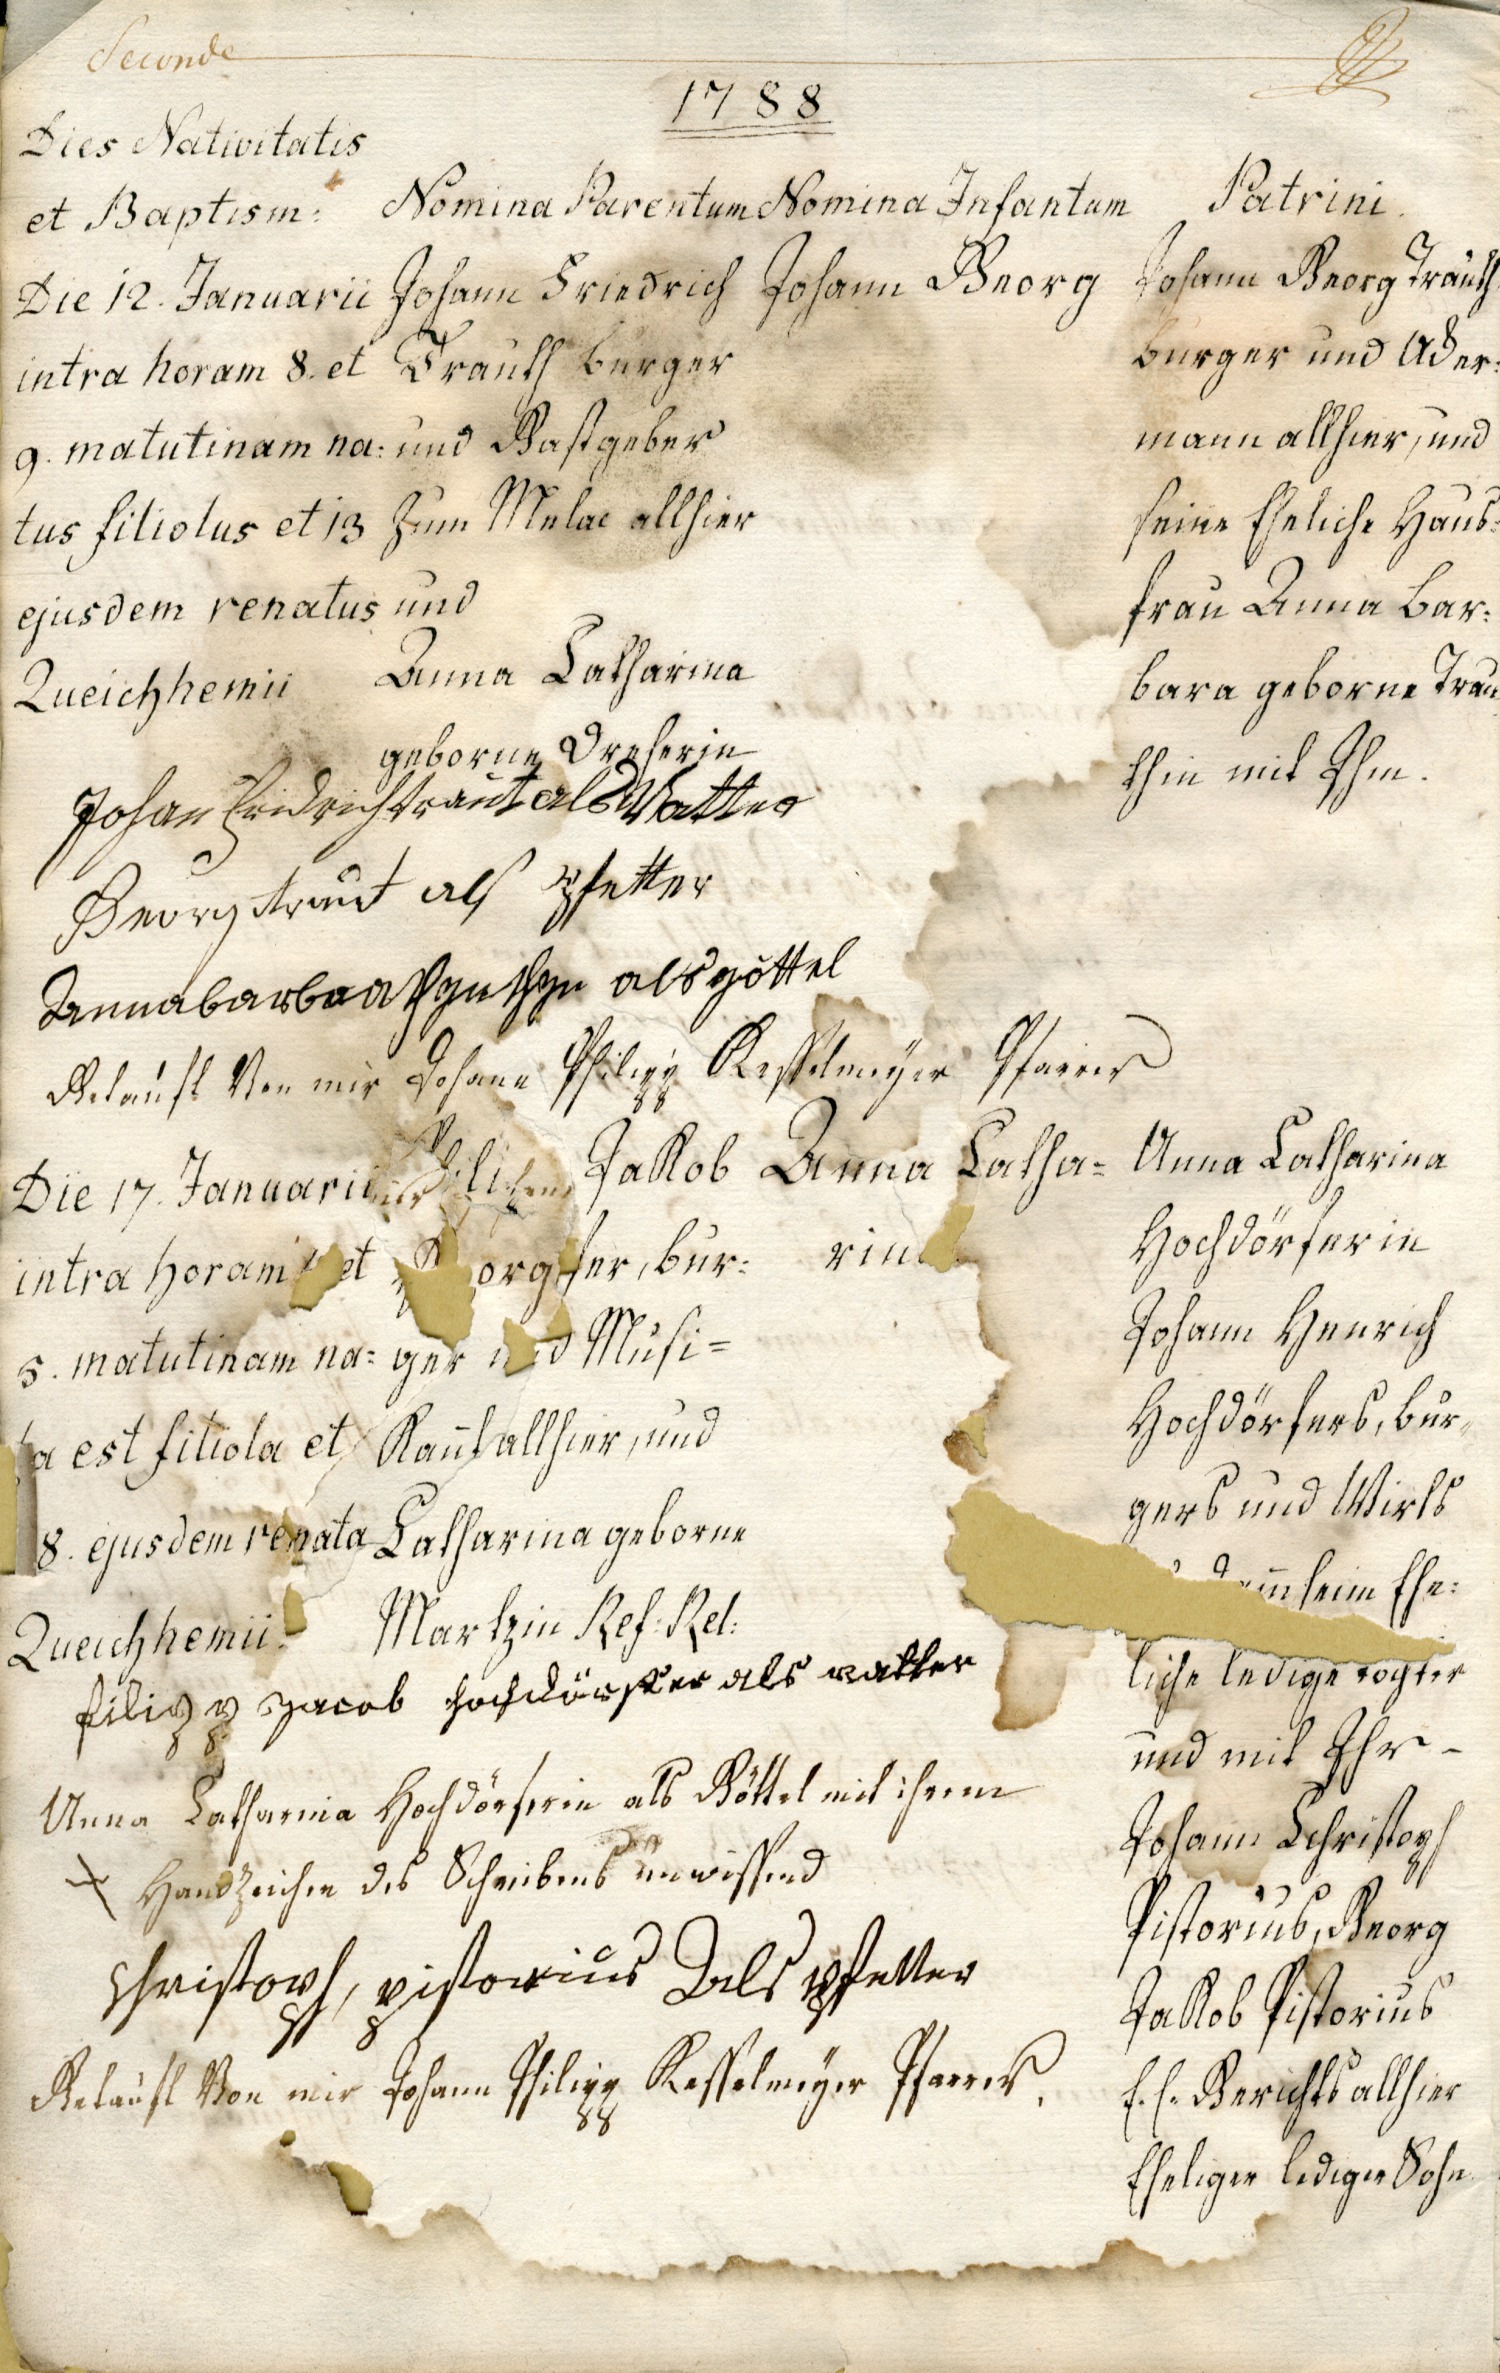 Seconde
1788
Dies Nativitatis
et Baptism:
Die 12. Januarii
intra horam 8. et
9. matutinam na:
tus filiolus et 13
ejusdem renatus
Queichhemii
Nomina Parentum
Johann Friedrich
Trauth burger
und Gastgeber
zum Melac allhier
und
Anna Catharina
geborne Dreherin
Nomina Infantum
Johann Georg
Patrini.
Johann Georg Trauth
burger und Acker:
mann allhier, und
seine Eheliche Haus:
frau Anna Bar:
bara geborne Trau
thin mit Ihm.
Johan fridrich traut als Vatter
Georg traut als pfetter
Anna barbara als göttel
Getauft Von mir Johann Philipp Kesselmeÿer Pfarrer
Die 17. Januarii
intra horam et
5. matutinam na=
ta est filiola et
8. ejusdem renata
Queichhemii.
Jakob
fer, bur:
ger und Musi=
Kant allhier, und
Catharina geborne
Martzin Ref: Rel:
Anna Catha=
rin
Anna Catharina
Hochdörferin
Johann Henrich
Hochdörfers, bur,
gers und Wirts
heim Ehe:
liche ledige tochter
und mit Ihr -
Johann Christoph
Pistorius, Georg
Jakob Pistorius
E. E. Gerichts allhier
Eheliger lediger Sohn
filipp Jacob hochdörffer als vatter
Anna Catharina Hochdörferin als Göttel mit ihrem
Handzeichen des Schreibens unwissend
christoph, pistorius Als pfetter
Getauft Von mir Johann Philipp Kesselmeÿer Pfarrer.